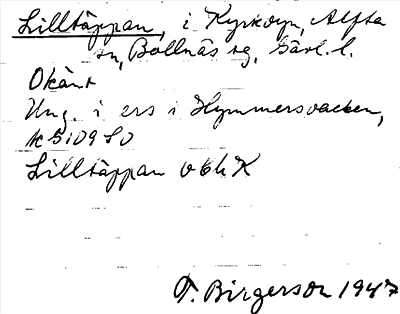 Lilltäppan, i Kyrkbyn, Alfta
sn, Bollnäs tg, Gävl. l.
Okänt
Ung. i ers i Hymmersvacken,
Lilltäppan obk K
T. Birgerson 1947